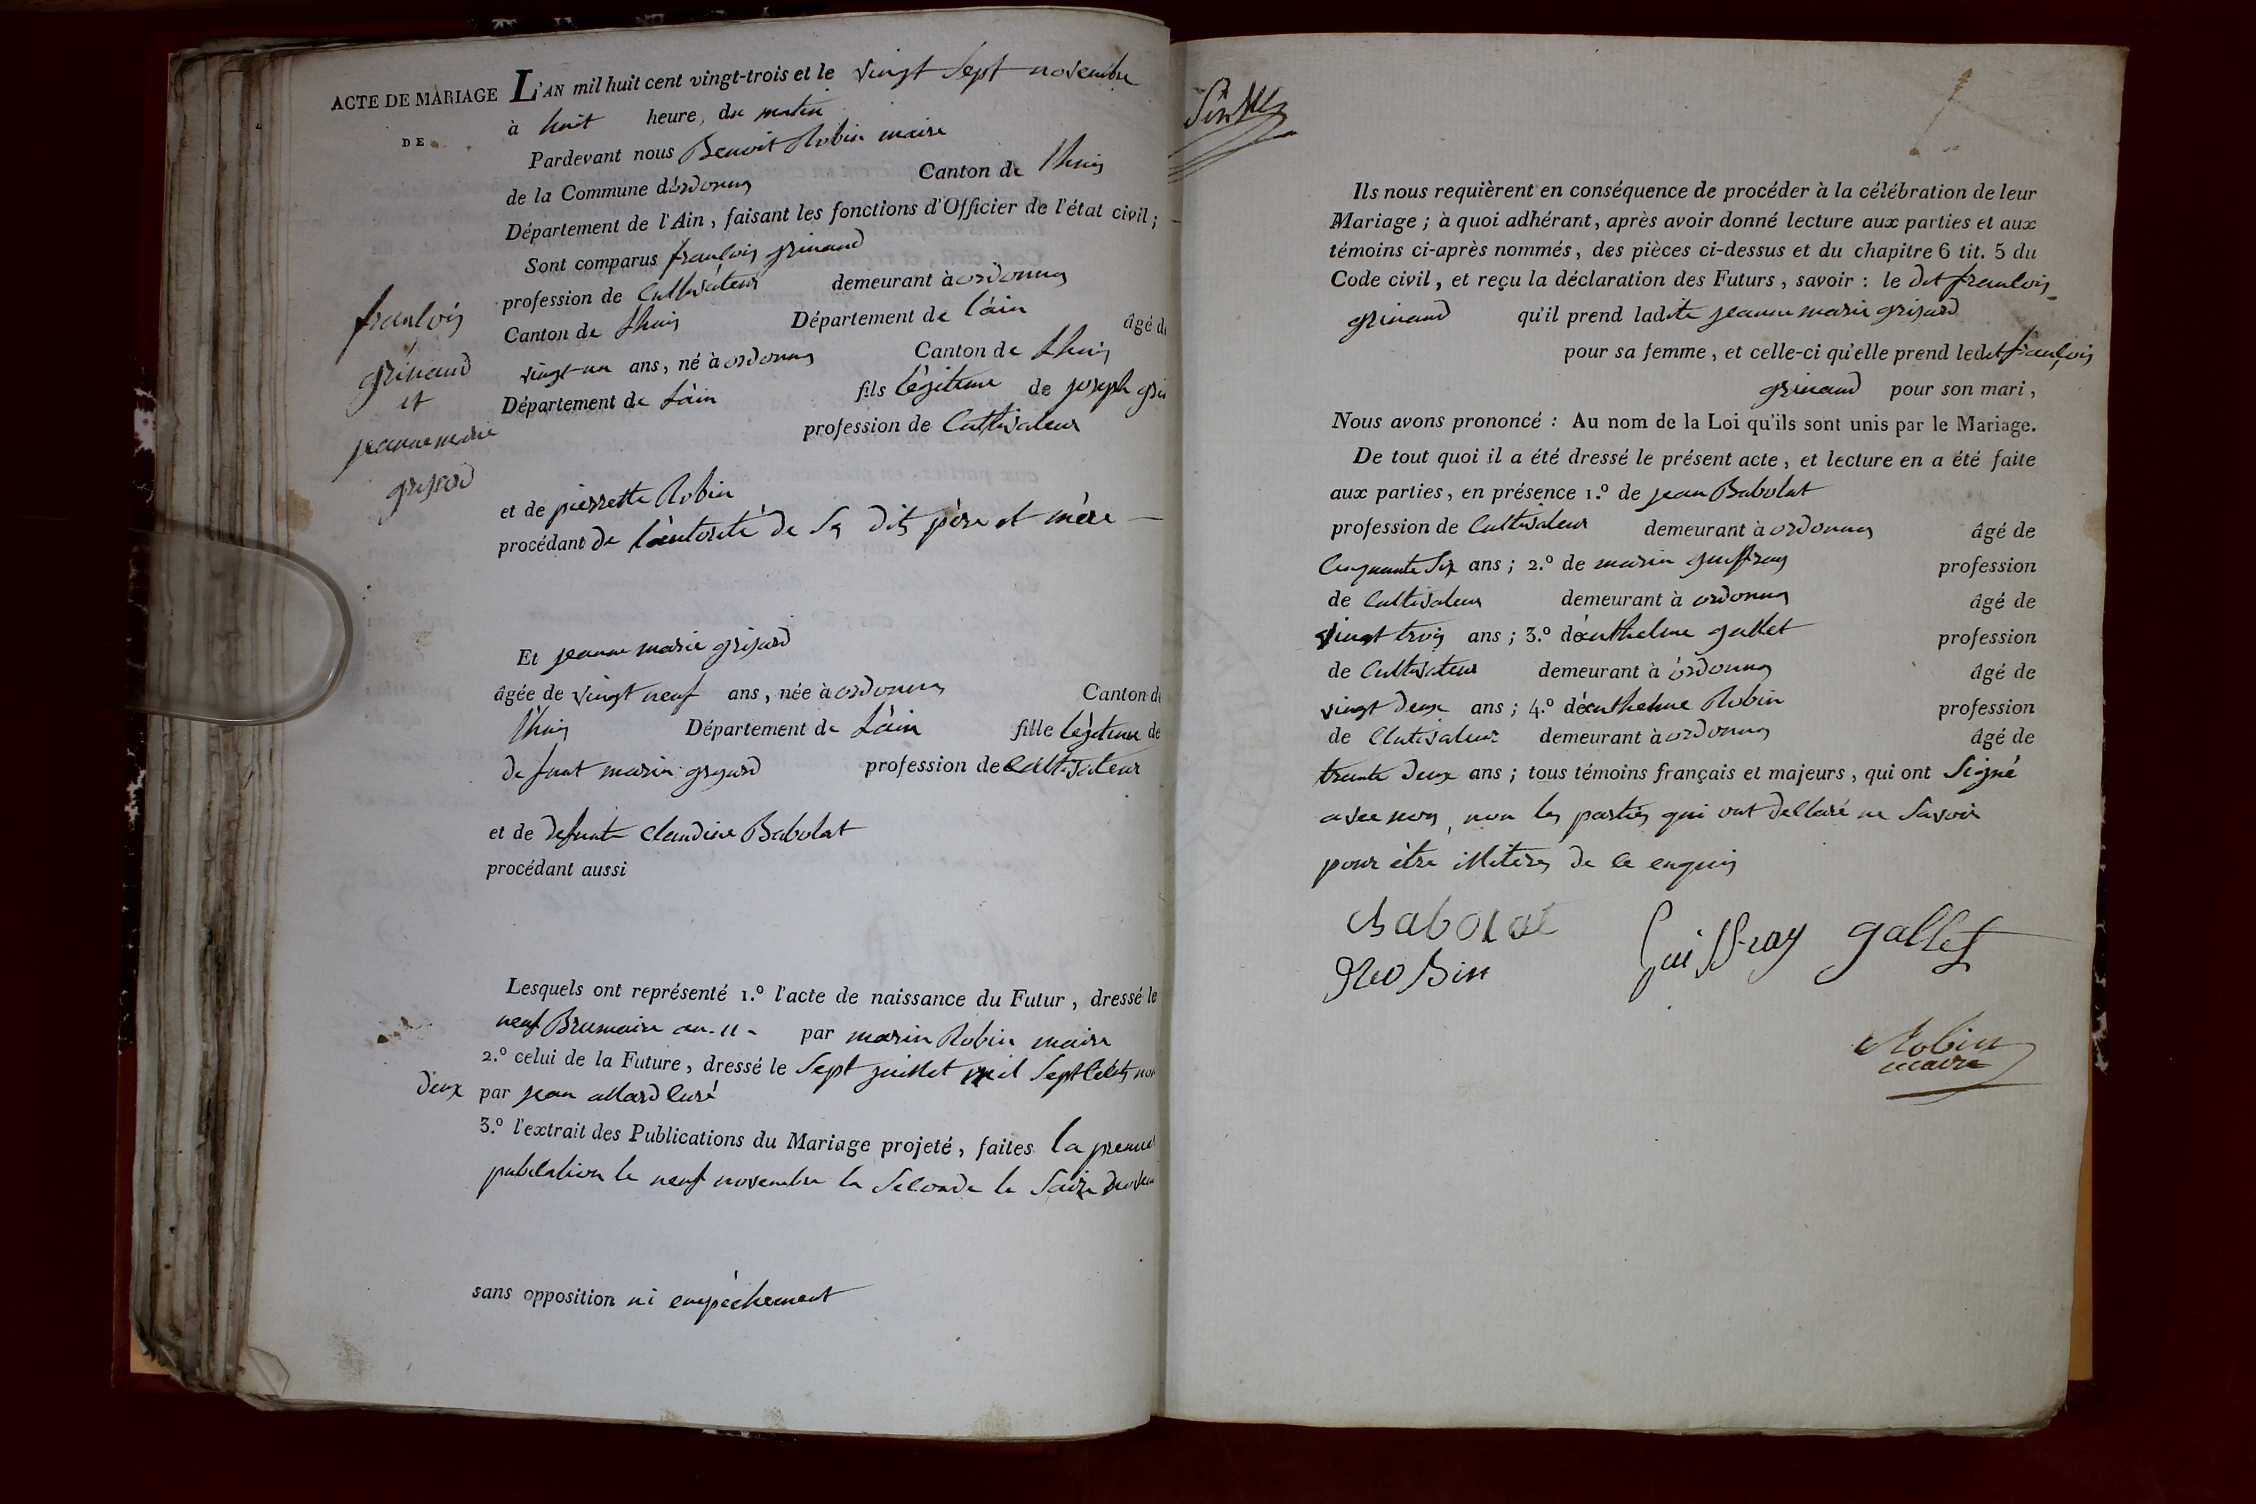 ACTE DE MARIAGE
DE
françois
grinand
et
jeanne marie
grisard
L'AN mil huit cent vingt-trois et le vingt sept novembre
à huit heure, du matin
Pardevant nous Benoit Robin maire
de la Commune d'ordonnas Canton de Lhuis
Département de l'Ain, faisant les fonctions d'Officier de l'état civil ;
Sont comparus françois grinand
profession de Cultivateur demeurant à ordonnas
Canton de Lhuis Département de L'ain âgé de
vingt-un ans, né à ordonnas Canton de Lhuis
Département de L'ain fils légitime de joseph gri
profession de Cultivateur
et de pierrette Robin
procédant de l'autorité de Ses dits père et mère
Et jeanne marie grisard
âgée de vingt neuf ans, née à ordonnas Canton de
Lhuis Département de L'ain fille légitime de
defunt marin grisard profession de Cultivateur
et de defunte Claudine Babolat
procédant aussi
Lesquels ont représenté 1.º l'acte de naissance du Futur, dressé le
neuf Brumaire an 11 par marin Robin maire
2.º celui de la Future, dressé le Sept juillet mil Sept Cents non
deux par jean allard Curé
3.º l'extrait des Publications du Mariage projeté, faites la premie
publication le neuf novembre la Seconde le Seize
sans opposition ni empêchement
Ils nous requièrent en conséquence de procéder à la célébration de leur
Mariage ; à quoi adhérant, après avoir donné lecture aux parties et aux
témoins ci-après nommés, des pièces ci-dessus et du chapitre 6 tit. 5 du
Code civil, et reçu la déclaration des Futurs, savoir : le dit françois
grinand qu'il prend ladite jeanne marie grisard
pour sa femme, et celle-ci qu'elle prend ledit françois
grinand pour son mari,
Nous avons prononcé : Au nom de la Loi qu'ils sont unis par le Mariage.
De tout quoi il a été dressé le présent acte, et lecture en a été faite
aux parties, en présence 1.º de jean Babolat
profession de Cultivateur demeurant à ordonnas âgé de
Cinquante Six ans ; 2.º de marin guiffray profession
de Cultivateur demeurant à ordonnas âgé de
vingt trois ans ; 3.º d'anthelme gallet profession
de Cultivateur demeurant à ordonnas âgé de
vingt deux ans ; 4.º d'anthelme Robin profession
de Clutivateur demeurant à ordonnas âgé de
trente deux ans ; tous témoins français et majeurs, qui ont Signé
avec nous, non les parties qui ont declaré ne Savoir
pour être illiteres de ce enquis
Babolat
Guiffray gallet
Robin
Robin
maire